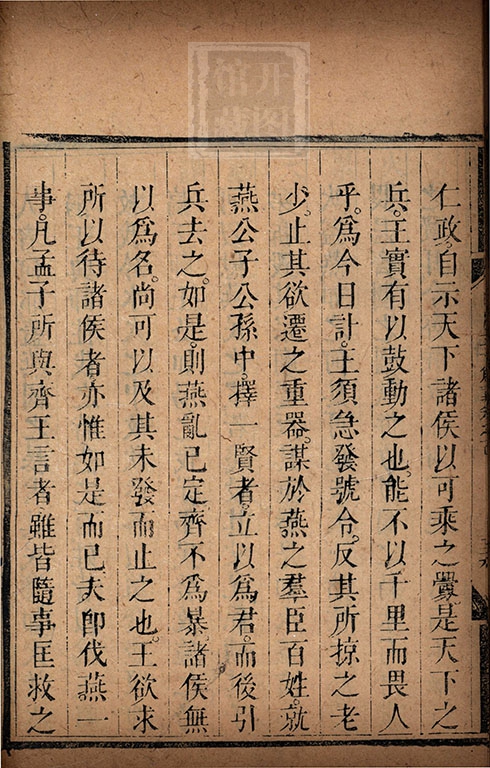 开图
馆藏
仁政。自示天下諸侯以可乘之釁。是天下之
兵。王實有以鼓動之也。能不以千里而畏人
乎。爲今日計。王須急發號令。反其所掠之老
少。止其欲遷之重器。謀於燕之羣臣百姓。就
燕公子公孫中。擇一賢者。立以爲君。而後引
兵去之。如是。則燕亂已定。齊不爲暴。諸侯無
以爲名。尚可以及其未發而止之也。王欲求
所以待諸侯者。亦惟如是而已。夫卽伐燕一
事。凡孟子所與齊王言者。雖皆隨事匡救之